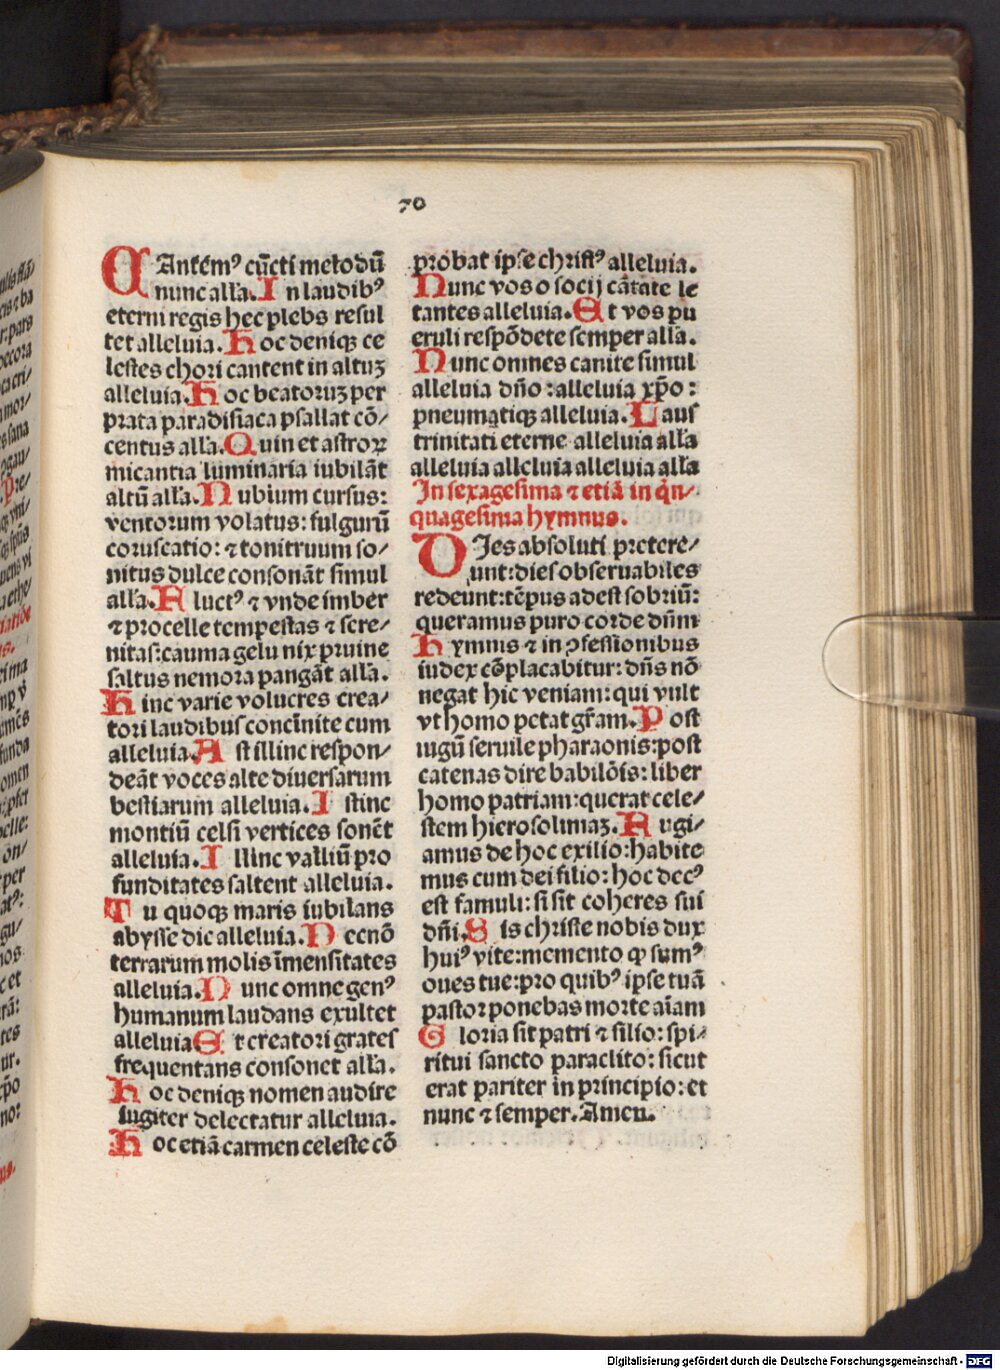 70
CAntemꝰ cūcti melodū
nunc alła. In laudibꝰ
eterni regis hec plebs resul
tet alleluia. Hoc deniqꝫ ce
lestes chori cantent in altuꝫ
alleluia. Hoc beatoruꝫ per
prata paradisiaca psallat cō-
centus alła. Quin et astroꝝ
micantia luminaria iubilāt
altū alła. Nubium cursus:
ventorum volatus: fulgurū
coruscatio: ⁊ tonitruum so-
nitus dulce consonāt simul
alła. Fluctꝰ ⁊ vnde imber
⁊ procelle tempestas ⁊ sere-
nitas: cauma gelu nix pruine
saltus nemora pangāt alła.
Hinc varie volucres crea-
tori laudibus concīnite cum
alleluia. Ast illinc respon-
deāt voces alte diuersarum
bestiarum alleluia. Istinc
montiū celsi vertices sonēt
alleluia. Illinc valliū pro
funditates saltent alleluia.
Tu quoqꝫ maris iubilans
abysse dic alleluia. Necnō
terrarum molis īmensitates
alleluia. Nunc omne genꝰ
humanum laudans exultet
alleluia Et creatori grates
frequentans consonet alła.
Hoc deniqꝫ nomen audire
iugiter delectatur alleluia.
Hoc etiā carmen celeste cō
probat ipse christꝰ alleluia.
Nunc vos o socij cātate le
tantes alleluia. Et vos pu
eruli respōdete semper alła.
Nunc omnes canite simul
alleluia dn̄o: alleluia xp̄o:
pneumatiqꝫ alleluia. Laus
trinitati eterne alleluia alła
alleluia alleluia alleluia alła
In sexagesima ⁊ etiā in qͥn-
quagesima hymnus.
DIes absoluti pretere-
unt: dies obseruabiles
redeunt: tēpus adest sobriū:
queramus puro corde dn̄m
Hymnis ⁊ in ↄfessionibus
iudex cōplacabitur: dn̄s nō
negat hic veniam: qui vult
vt homo petat gr̄am. Post
iugū seruile pharaonis: post
catenas dire babilōis: liber
homo patriam: querat cele-
stem hierosolimaꝫ. Fugi-
amus de hoc exilio: habite
mus cum dei filio: hoc decꝰ
est famuli: si sit coheres sui
dn̄i. Sis christe nobis dux
huiꝰ vite: memento ꝙ sumꝰ
oues tue: pro quibꝰ ipse tuā
pastor ponebas morte aīam
Gloria sit patri ⁊ filio: spi-
ritui sancto paraclito: sicut
erat pariter in principio: et
nunc ⁊ semper. Amen.
Digitalisierung gefördert durch die Deutsche Forschungsgemeinschaft - DFG